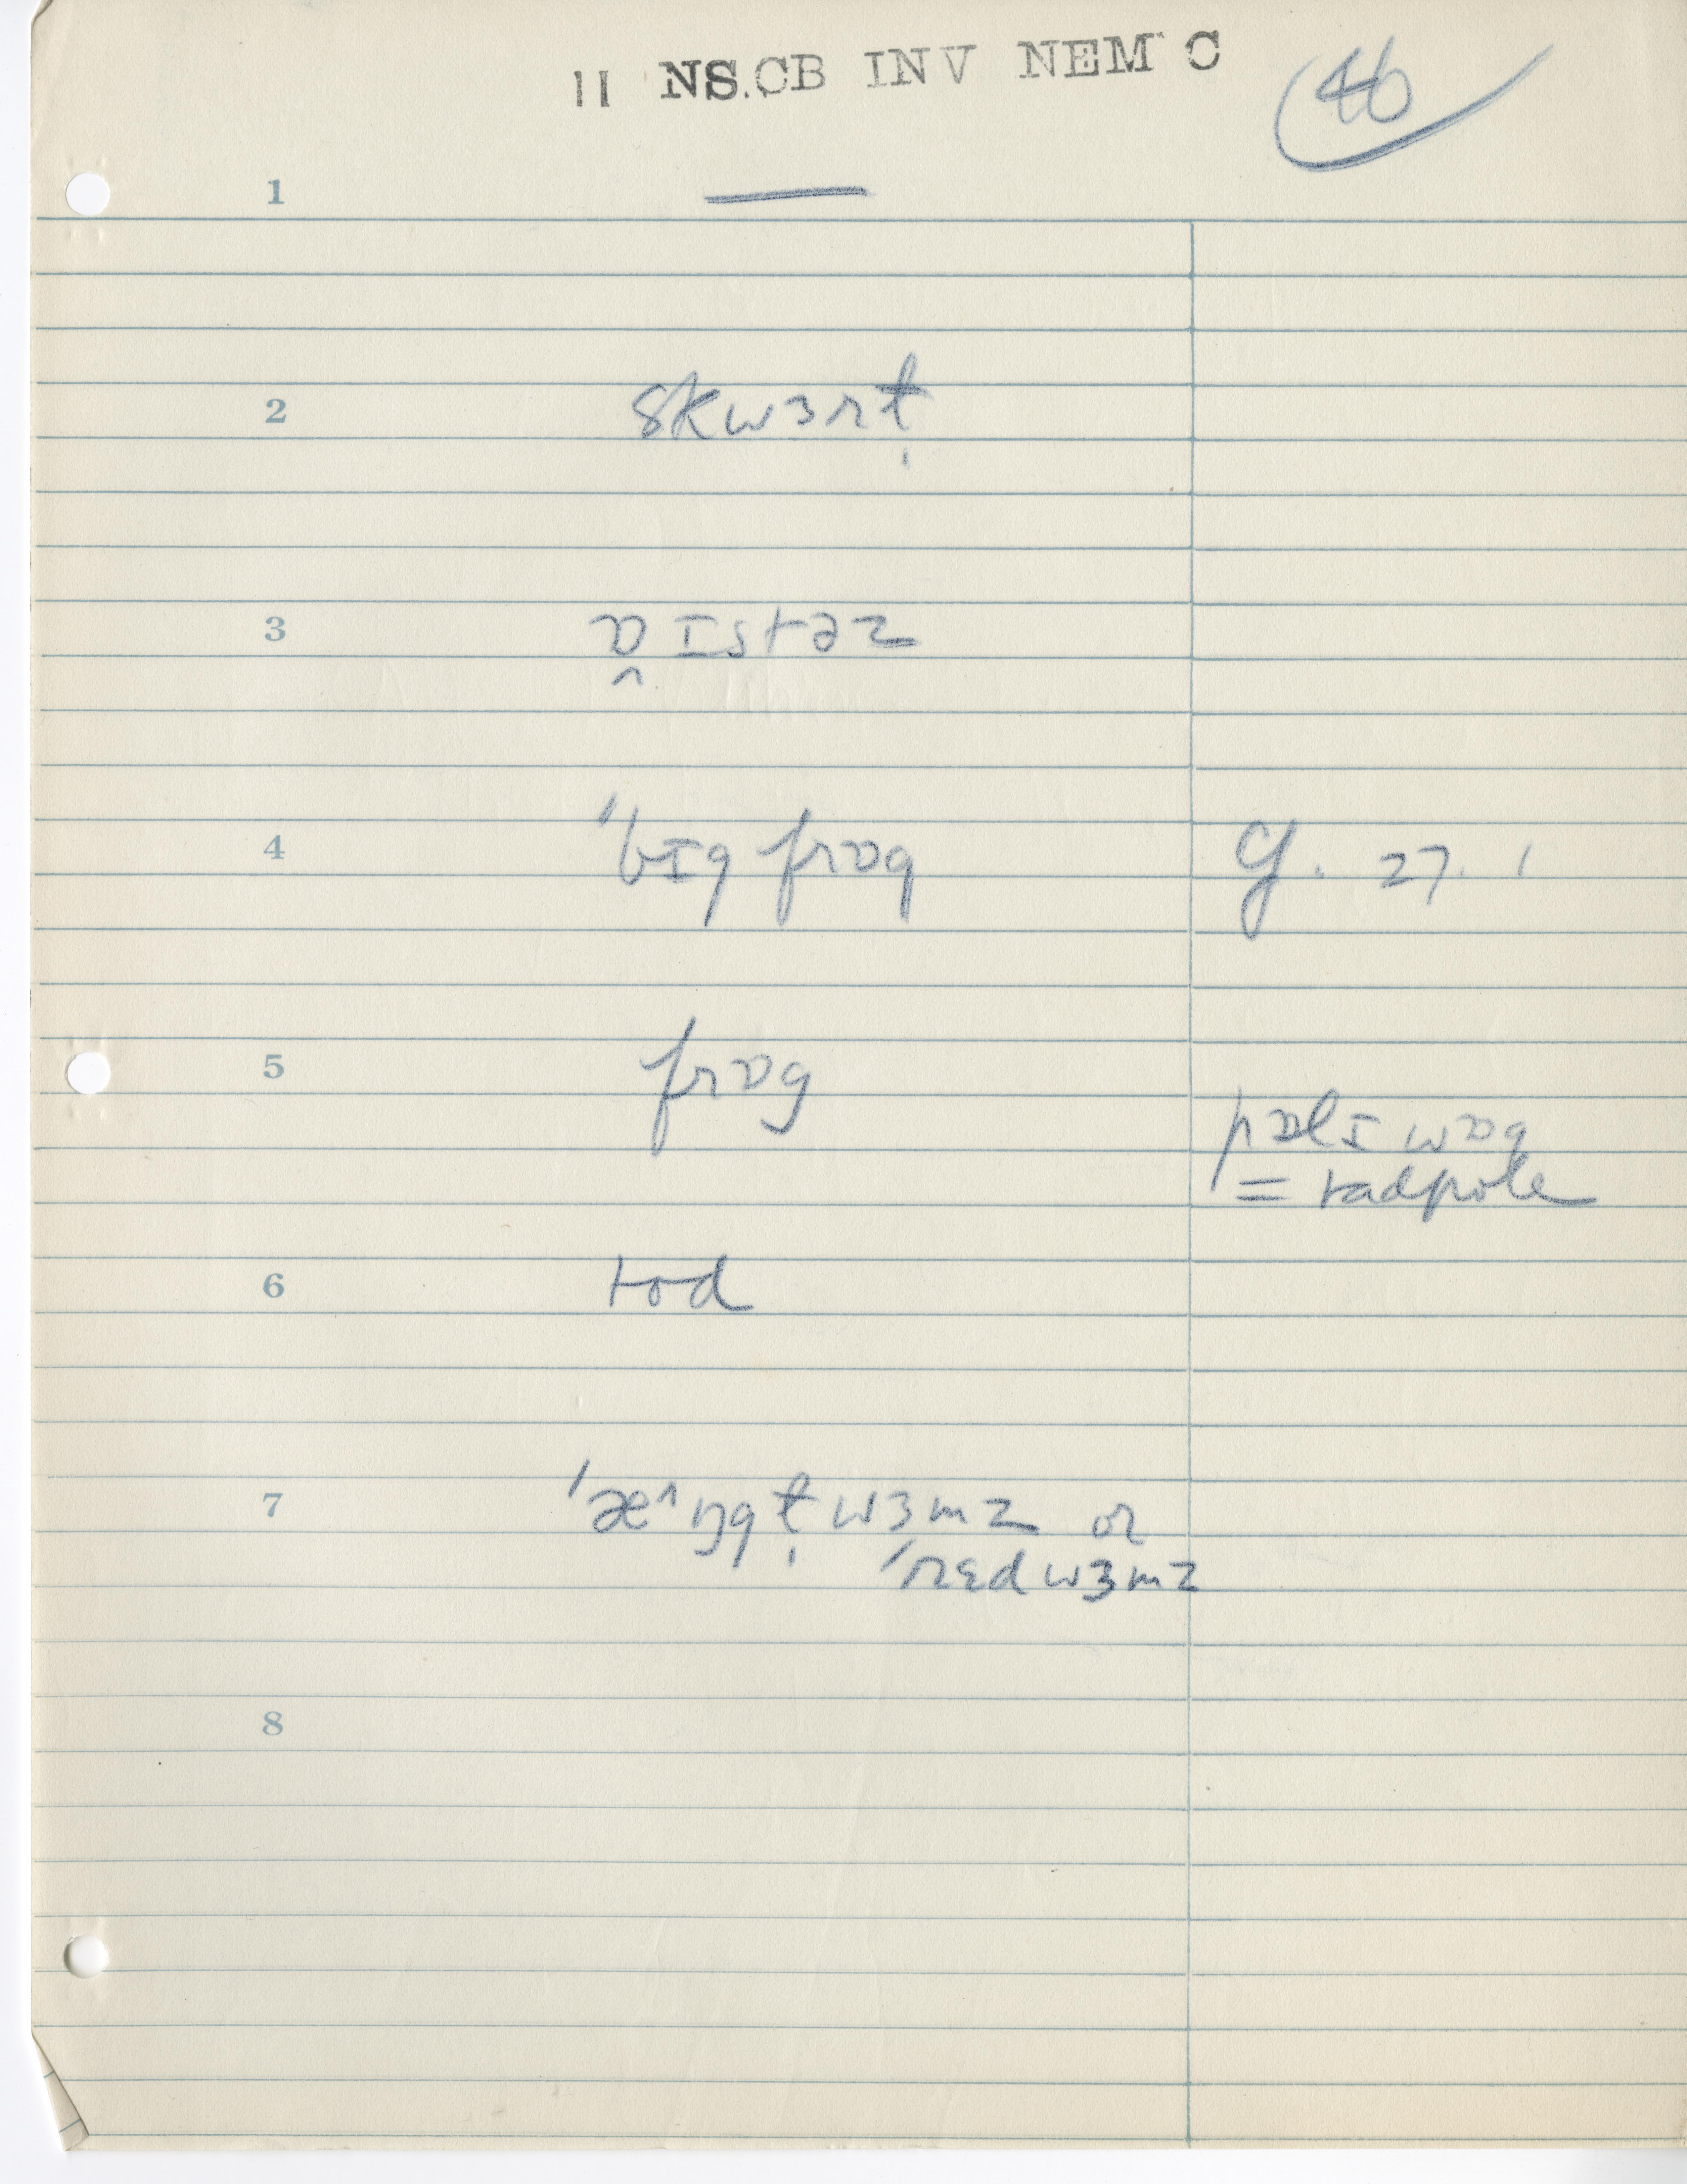 11 NS.CB INV NEM C
46
1 —
2 skwɜrt̩
3 ɒ̭ɪstəz
4 "bɪg frɒg cf. 27.1
5 frɒg
pɒlɪwɒg
= tadpole
6 tod
7 'æ^ŋgɫ̩wɜmz or
'rɛdwɜmz
8